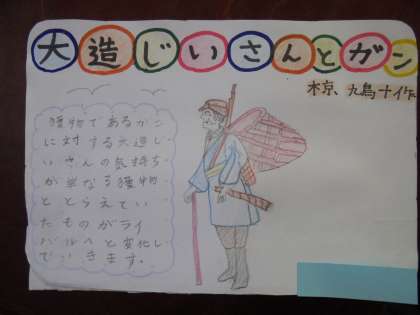 大造じいさんとガン
椋、鳩十作
獲物であるガン
に対する大造じ
いさんの気持ち
が単なる獲物
ととらえてい
たものがライ
バルへと変化し
ていきます。